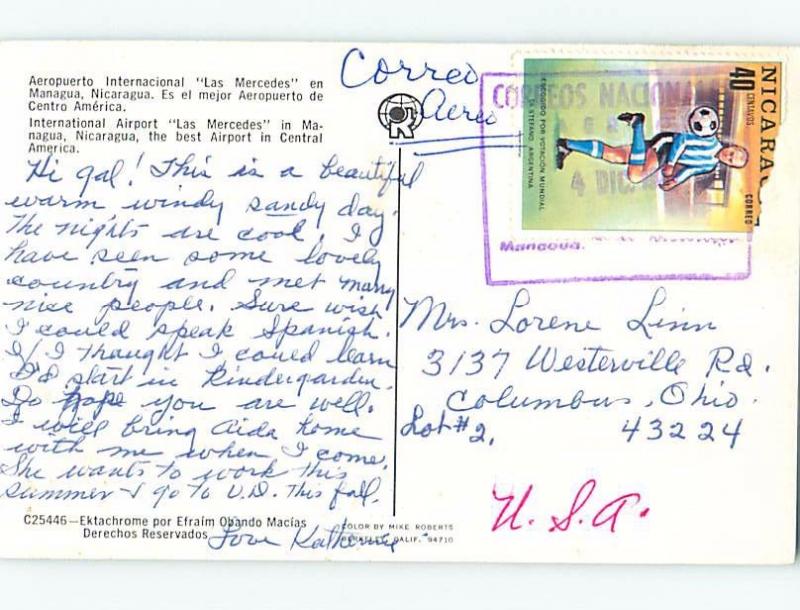 Aeropuerto Internacional "Las Mercedes" en
Managua, Nicaragua. Es el mejor Aeropuerto de
Centro América.
International Airport "Las Mercedes" in Ma-
nagua, Nicaragua, the best Airport in Central
America.
Hi gal! This is a beautiful
warm windy sandy day.
The nights are cool. I
have seen some lovely
country and met many
nice people. Sure wish
I could speak Spanish.
If I thought I could learn
I'd start in Kindergarden.
Do hope you are well.
I will bring Aida home
with me when I come.
She wants to work this
summer & go to U.D. this fall.
Love Katherine
C25446—Ektachrome por Efraím Obando Macías
Derechos Reservados
COLOR BY MIKE ROBERTS
BERKELEY, CALIF. 94710
Correo
Aereo
R
NICARAGUA
40
CENTAVOS
CORREO
ESCOGIDO POR VOTACION MUNDIAL
DI STEFANO ARGENTINA
CORREOS NACIONAL
4 DIC
Managua.
Mrs. Lorene Linn
3137 Westerville Rd.
Columbus, Ohio.
Lot #2. 43224
U.S.A.